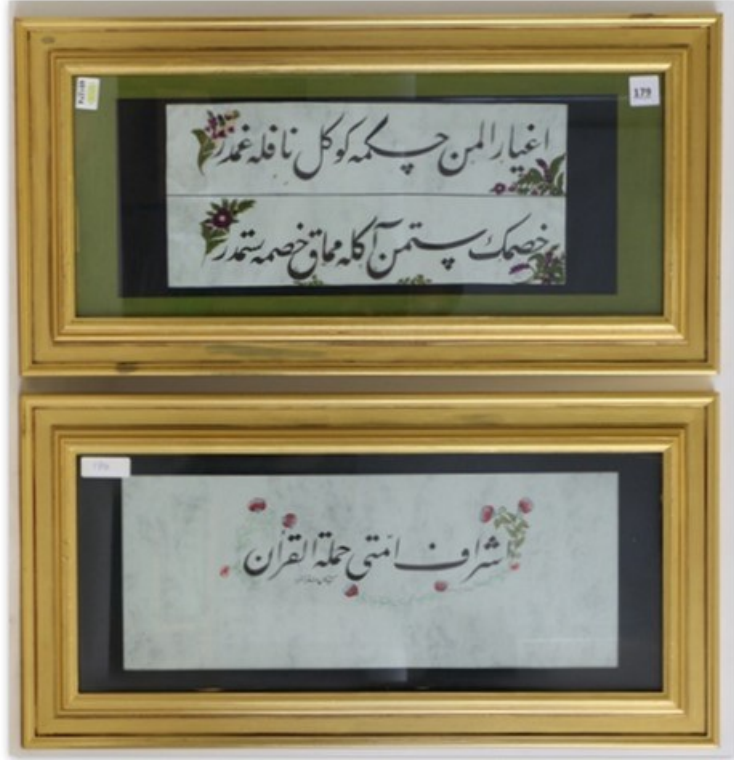 179
اغيار المن چكمه كوكل نافله غمدر
خصمك ستمن آكله مماق خصمه ستمدر
اشراف امّتي حملة القرآن